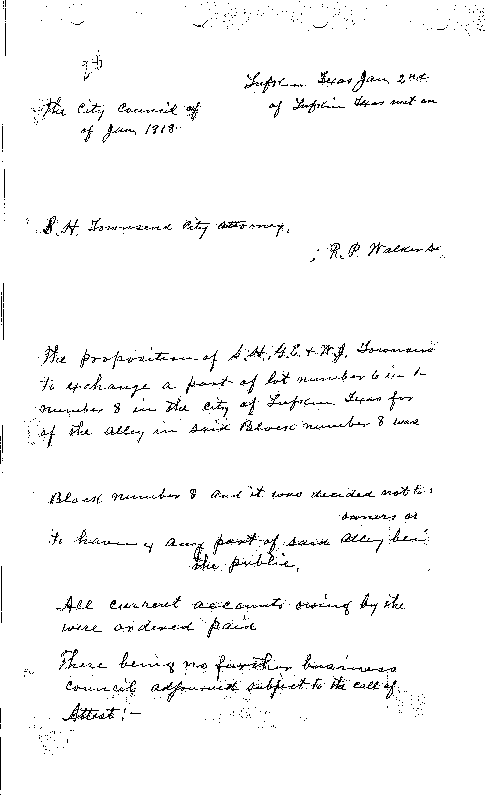 Lufkin Texas Jan 2nd
The City Council of
of Lufkin Texas met on
of Jan, 1918.
R. H. Townsend City Attorney,
R. P. Walker
The proposition of S. H., G. E. & W. J. Townsend
to exchange a part of lot number 6 in
number 8 in the City of Lufkin Texas for
of the alley in said Block number 8 was
Block number 8 and it was decided not to
owners or
to have any part of said alley bein
the public.
All current accounts owing by the
were ordered paid
There being no further business
council adjourned subject to the call of
Attest:-